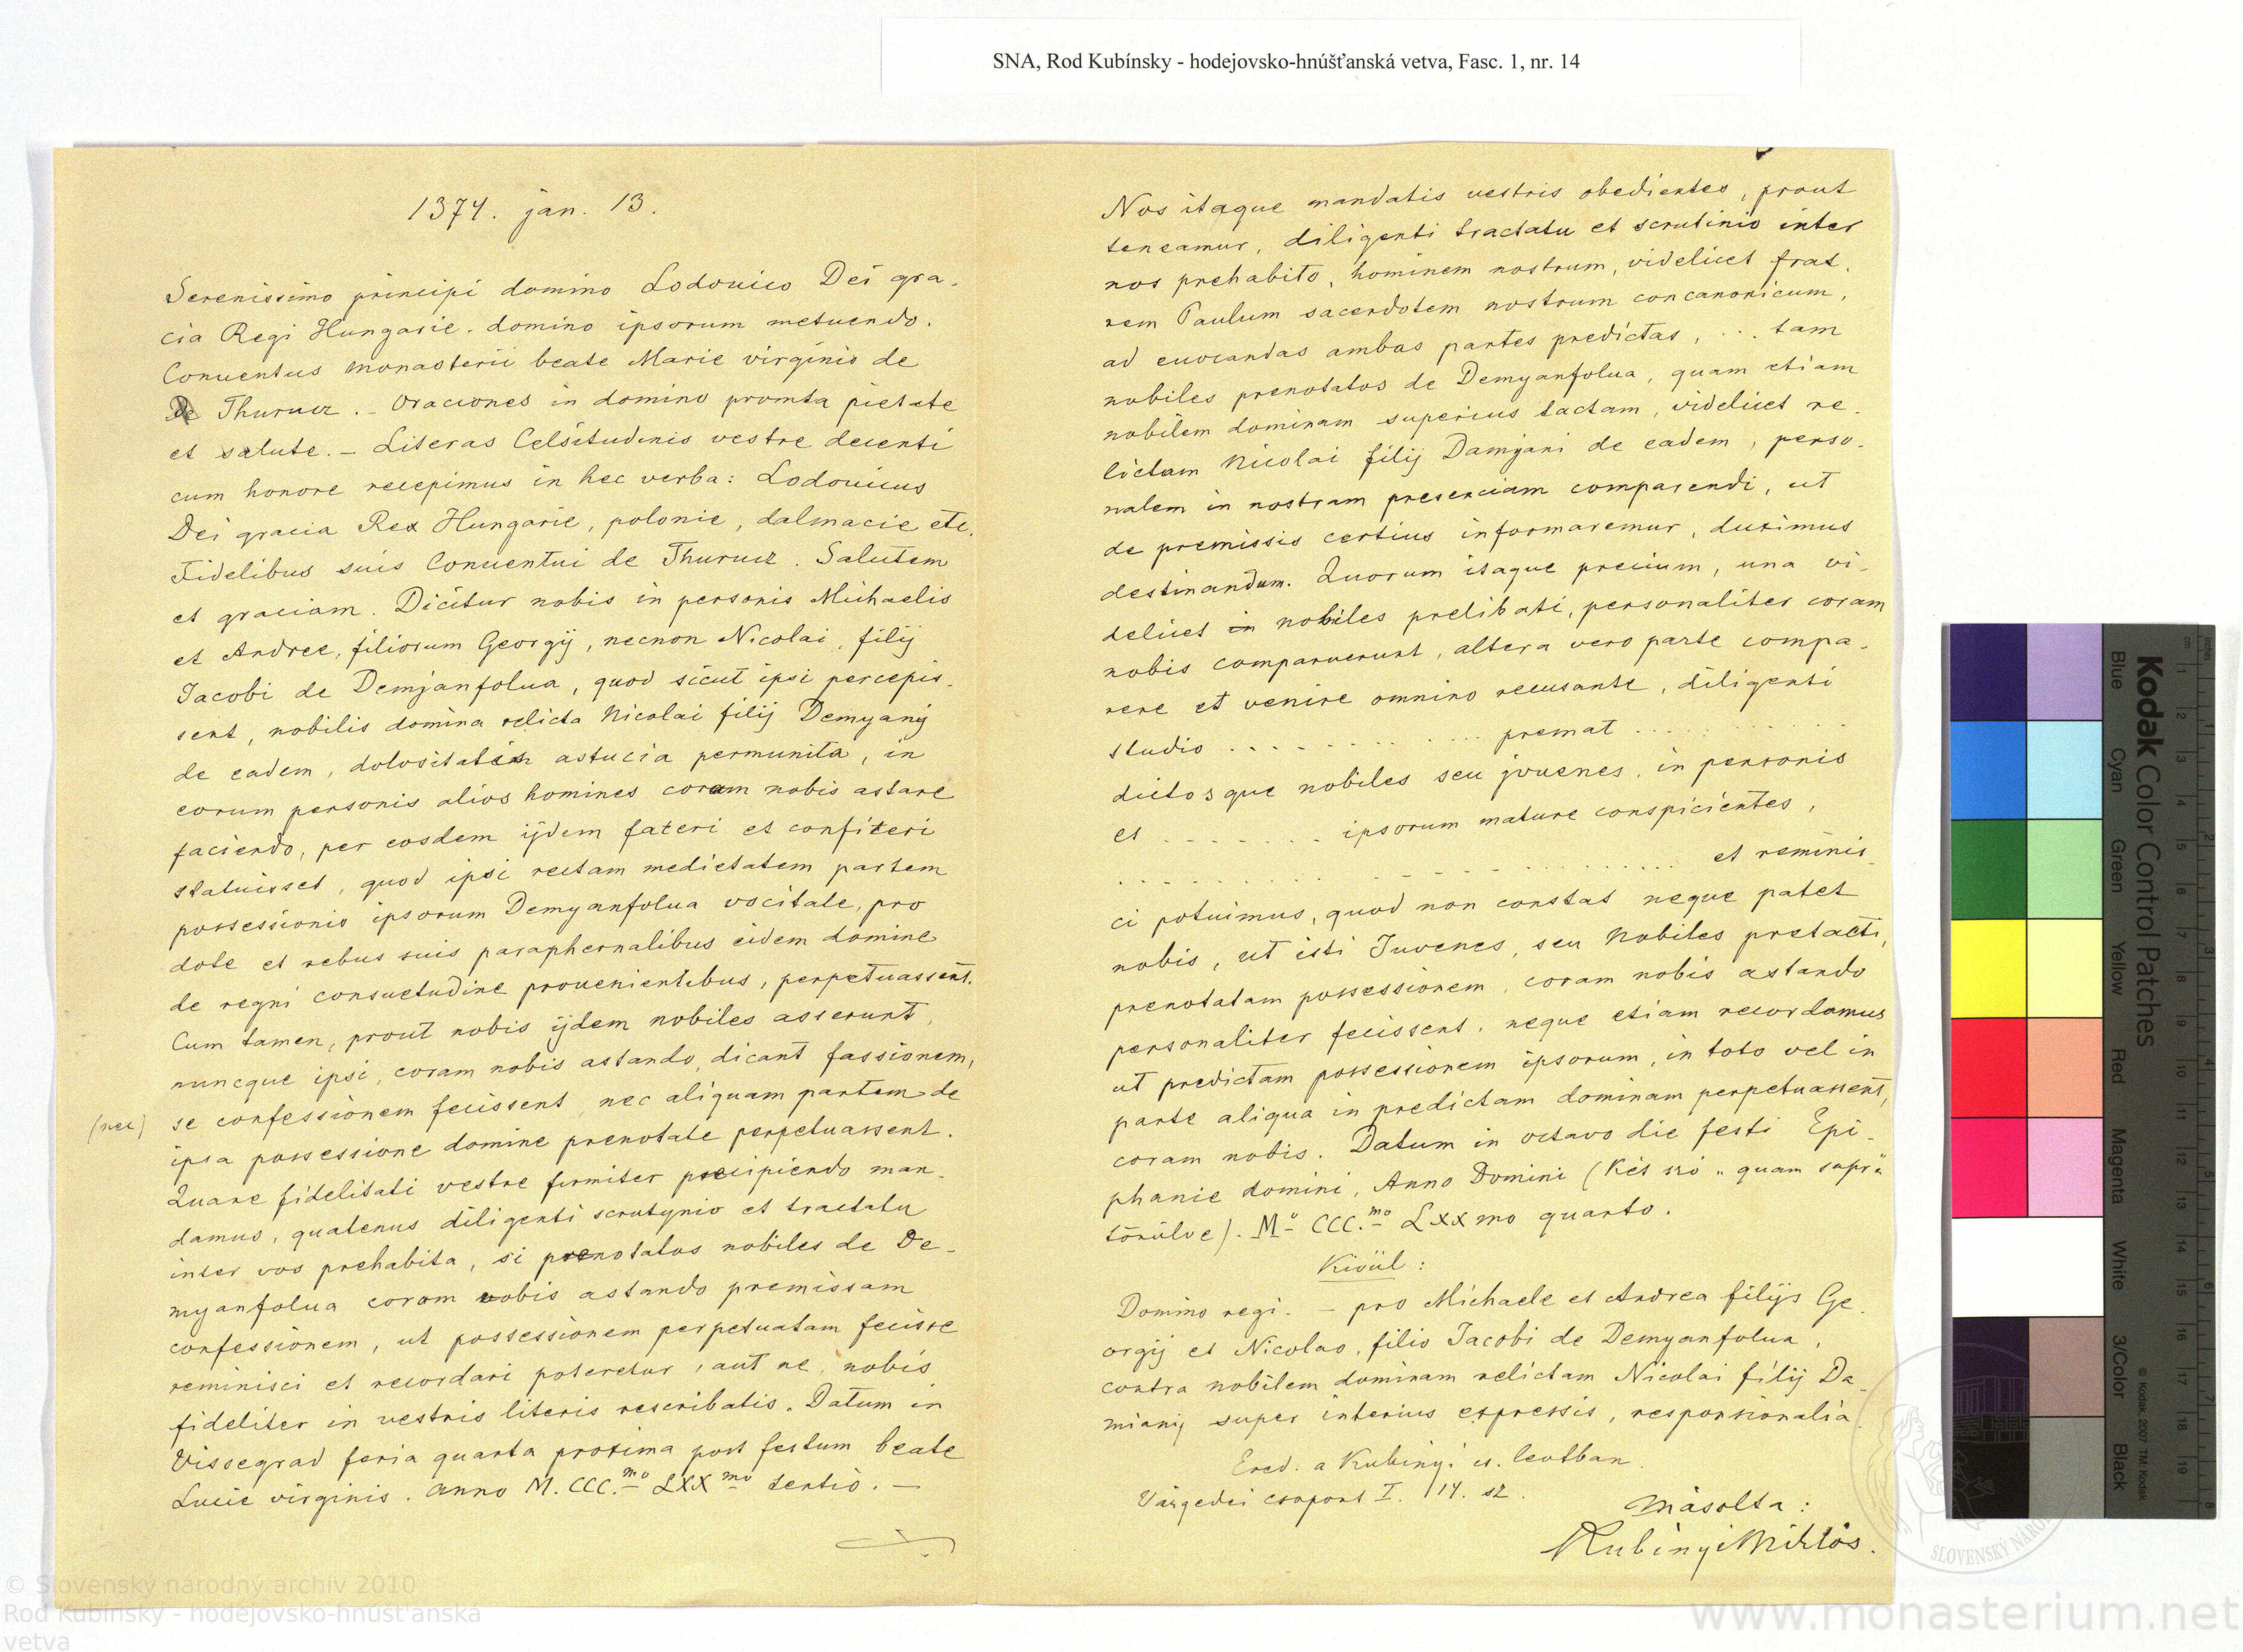 SNA, Rod Kubínsky - hodejovsko-hnúšťanská vetva, Fasc. 1, nr. 14
1374. jan. 13.
Serenissimo principi domino Lodouico Dei gra-
cia Regi Hungarie. domino ipsorum metuendo.
Conuentus monasterii beate Marie virginis de
de Thurucz. - Oraciones in domino promta pietate
et salute. - Literas Celsitudinis vestre decenti
cum honore recepimus in hec verba: Lodouicus
Dei gracia Rex Hungarie, polonie, dalmacie etc.
Fidelibus suis Conuentui de Thurucz. Salutem
et graciam. Dicitur nobis in personis Michaelis
et Andree, filiorum Georgij, necnon Nicolai, filij
Jacobi de Demjanfolua, quod sicut ipsi percepis-
sent, nobilis domina relicta Nicolai filij Demyanij
de eadem, dolositatis astucia permunita, in
eorum personis alios homines coram nobis astare
faciendo, per eosdem ijdem fateri et confiteri
statuisset, quod ipsi rectam medietatem partem
possessionis ipsorum Demyanfolua vocitate, pro
dote et rebus suis paraphernalibus eidem domine
de regni consuetudine prouenientibus, perpetuassent.
Cum tamen, prout nobis ijdem nobiles asserunt,
nuncque ipsi, coram nobis astando, dicant fassionem,
(nec) se confessionem fecissent nec aliquam partem de
ipsa possessione domine prenotate perpetuassent.
Quare fidelitati vestre firmiter precipiendo man-
damus, quatenus diligenti scrutynio et tractatu
inter vos prehabita, si prenotatos nobiles de De-
myanfolua coram vobis astando premissam
confessionem, ut possessionem perpetuatam fecisse
reminisci et recordari poteretur, aut ne, nobis
fideliter in vestris literis rescribatis. Datum in
Vissegrad feria quarta proxima post festum beate
Lucie virginis. Anno M. CCC.mo LXXmo tertio. -
Nos itaque mandatis vestris obedientes, prout
teneamur, diligenti tractatu et scrutinio inter
nos prehabito, hominem nostrum, videlicet frat-
rem Paulum sacerdotem nostrum concanonicum,
ad euocandas ambas partes predictas, ... tam
nobiles prenotatos de Demyanfolua, quam etiam
nobilem dominam superius tactam, videlicet re-
lictam Nicolai filij Damjani de eadem, perso-
nalem in nostram presenciam comparendi, ut
de premissis certius informaremur, duximus
destinandum. Quorum itaque precium, una vi-
delicet in nobiles prelibati, personaliter coram
nobis comparuerunt, altera vero parte compa-
rere et venire omnino recusante, diligenti
studio . . . . . . . . . . premat . . . . . .
dictosque nobiles seu jvuenes, in personis
et . . . . . . . ipsorum mature conspicientes,
. . . . . . . . . . . . . . . . . . et reminis-
ci potuimus, quod non constat neque patet
nobis, ut isti Juvenes, seu Nobiles pretacti,
prenotatam possessionem, coram nobis astando
personaliter fecissent, neque etiam recordamus
ut predictam possessionem ipsorum, in toto vel in
parte aliqua in predictam dominam perpetuassent,
coram nobis. Datum in octavo die festi Epi-
phanie domini, Anno Domini (Két szó "quam supra"
törülve). Mo CCC.mo LXXmo quarto.
Kivül:
Domino regi. - pro Michaele et Andrea filijs Ge-
orgij et Nicolao, filio Jacobi de Demyanfolua,
contra nobilem dominam relictam Nicolai filij Da-
mianij super interius expressis, responsionalia.
Ered. a Kubinyi cs. levtban.
Várgedei csoport I. 14. sz.
Másolta:
Kubinyi Miklós.
Kodak Color Control Patches
Blue Cyan Green Yellow Red Magenta White 3/Color Black
© Kodak, 2007 TM: Kodak
© Slovenský národný archív 2010
Rod Kubínsky - hodejovsko-hnúšťanská
vetva
www.monasterium.net